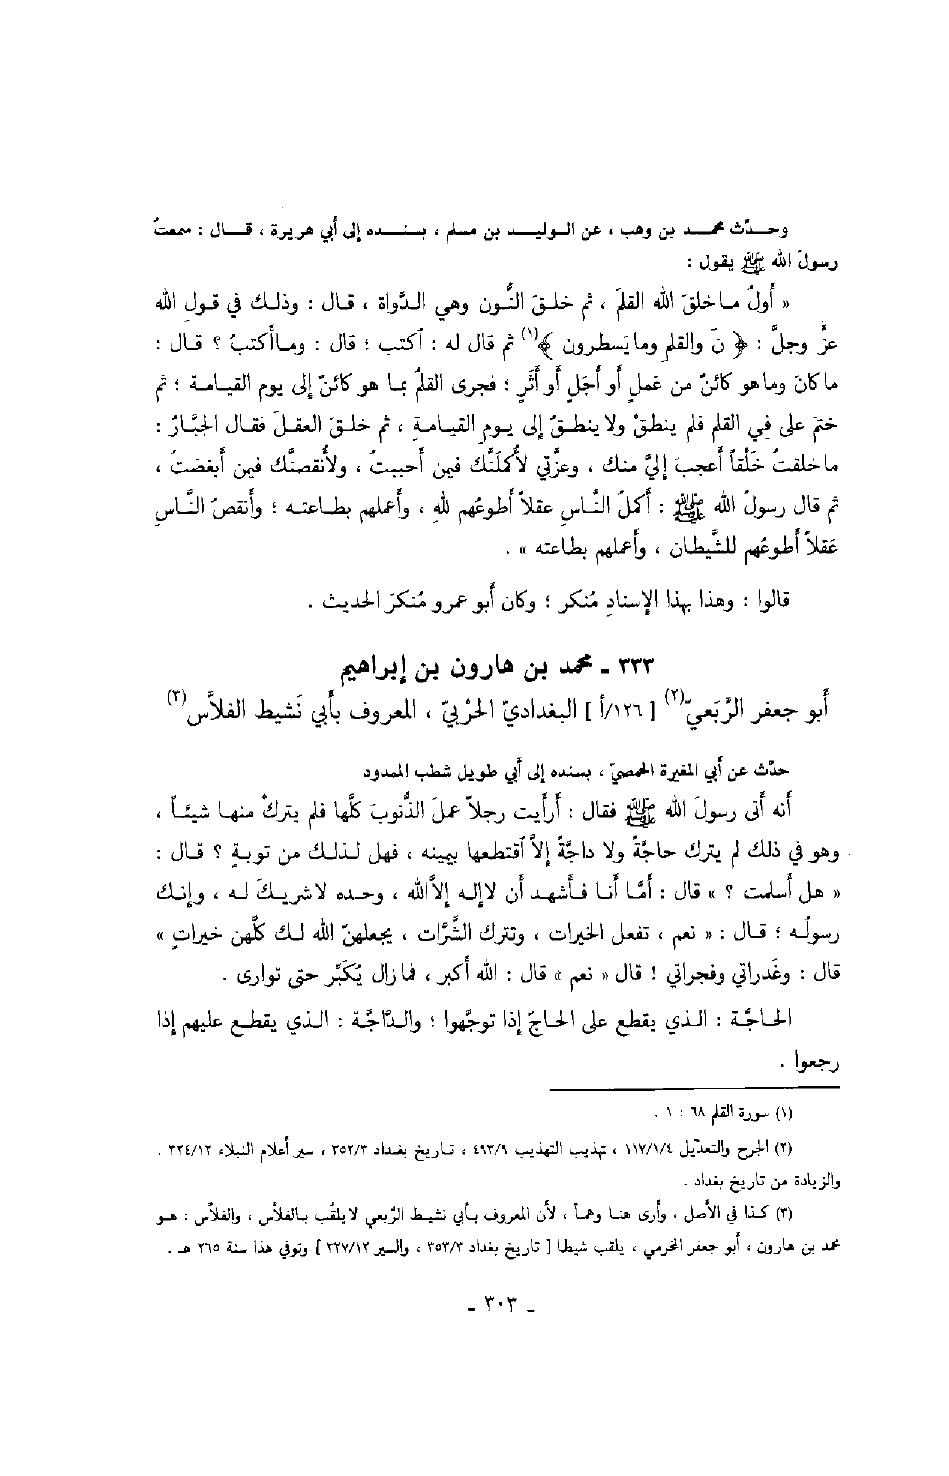 وحدَّث محمد بن وهب ، عن الوليد بن مسلم ، بسنده إلى أبي هريرة ، قال : سمعتُ
رسولَ الله ﷺ يقول :
« أولُ ما خلقَ الله القلمَ ، ثم خلقَ النُّون وهي الدَّواة ، قال : وذلك في قول الله
عزَّ وجلَّ : ﴿ نَ والقلمِ وما يَسطرون ﴾(١) ثم قال له : اُكتب ؛ قال : وما أكتبُ ؟ قال :
ما كانَ وما هو كائنٌ من عملٍ أو أجَلٍ أو أثَرٍ ؛ فجرى القلمُ بما هو كائنٌ إلى يوم القيامة ؛ ثم
ختمَ على فِي القلم فلم ينطقْ ولا ينطقُ إلى يوم القيامةِ ، ثم خلقَ العقلَ فقال الجبَّارُ :
ما خلقتُ خَلْقاً أعجبَ إليَّ منك ، وعزَّتي لأُكَلِّنَّك فيمن أحببتُ ، ولأُنقصنَّك فيمن أبغضتُ ،
ثم قال رسولُ الله ﷺ : أكملُ النَّاسِ عقلاً أطوعُهم للهِ ، وأعملهم بطاعته ؛ وأنقصُ النَّاسِ
عَقلاً أطوعُهم للشَّيطان ، وأعملهم بطاعته » .
قالوا : وهذا بهذا الإسنادِ مُنكر ؛ وكان أبو عمرو مُنكرَ الحديث .
٣٣٣ ـ محمد بن هارون بن إبراهيم
أبو جعفر الرَّبَعيّ(٢) [ ١٢٦/أ ] البغداديّ الحَرْبيّ ، المعروف بأبي نَشيط الفلاَّس(٣)
حدَّث عن أبي المغيرة الحمصيّ ، بسنده إلى أبي طويل شطب الممدود
أنه أتى رسولَ الله ﷺ فقال : أرأيت رجلاً عملَ الذُّنوبَ كلَّها فلم يتركْ منها شيئاً ،
وهو في ذلك لم يترك حاجَّةً ولا داجَّةً إلاَّ اُقتطعها بيمينه ، فهل لذلك من توبةٍ ؟ قال :
« هل أسلمت ؟ » قال : أمَّا أنا فأشهد أن لا إله إلاَّ الله ، وحده لا شريكَ له ، وإنك
رسولُه ؛ قال : « نعم ، تفعل الخيرات ، وتترك الشَّرَّات ، يجعلهنّ الله لك كلَّهن خيراتٍ »
قال : وغَدراتي وفجراتي ! قال « نعم » قال : الله أكبر ، فما زال يُكَبِّر حتى توارى .
الحاجَّة : الذي يقطع على الحاجّ إذا توجَّهوا ؛ والدَّاجَّة : الذي يقطع عليهم إذا
رجعوا .
(١) سورة القلم ٦٨ : ١ .
(٢) الجرح والتعديل ١١٧/١/٤ ، تهذيب التهذيب ٤٩٣/٩ ، تاريخ بغداد ٣٥٢/٣ ، سير أعلام النبلاء ٣٢٤/١٢ .
والزيادة من تاريخ بغداد .
(٣) كذا في الأصل ، وأرى هنا وهماً ، لأن المعروف بأبي نشيط الربعي لا يلقب بالفلاّس ، والفلاّس : هو
محمد بن هارون ، أبو جعفر المخرمي ، يلقب شيطا [ تاريخ بغداد ٣٥٣/٣ ، والسير ٣٢٧/١٢ ] وتوفي هذا سنة ٢٦٥ هـ .
ـ ٣٠٣ ـ